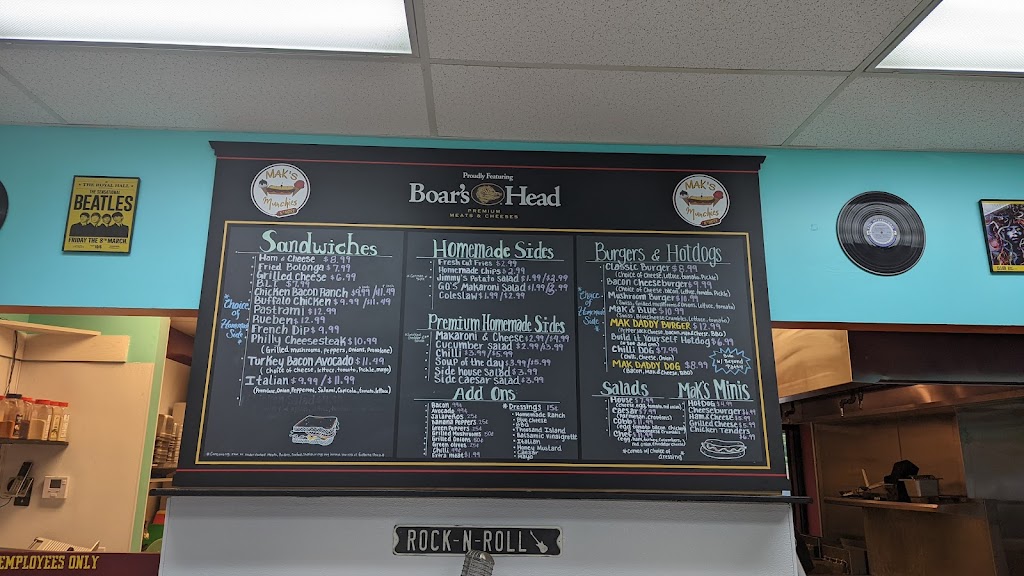 THE ROYAL HALL
THE SENSATIONAL
BEATLES
FRIDAY THE 8TH MARCH
MAK'S
Munchies
Proudly Featuring
Boar's Head
PREMIUM
MEATS & CHEESES
MAK'S
Munchies
Sandwiches
Ham & Cheese $8.99
Fried Bologna $7.99
Grilled Cheese $6.99
BLT $7.99
Chicken Bacon Ranch $9.99/11.49
Buffalo Chicken $9.99/11.49
Pastrami $12.99
Rueben $12.99
French Dip $9.99
Philly Cheesesteak $10.99
(Grilled mushrooms, Peppers, Onions, Provolone)
Turkey Bacon Avocado $11.99
(Choice of cheese, lettuce, tomato, Pickle, mayo)
Italian $9.99/$11.99
*Choice of Homemade Side*
Homemade Sides
Fresh Cut Fries $2.99
Homemade Chips $2.99
Jimmy's Potato Salad $1.99/$2.99
GG's Makaroni Salad $1.99/2.99
Coleslaw $1.99/$2.99
Premium Homemade Sides
Makaroni & Cheese $2.99/$4.99
Cucumber Salad $2.99/3.99
Chilli $3.99/$5.99
Soup of the day $3.99/$5.99
Side House Salad $3.99
Side Caesar Salad $3.99
Add Ons
Bacon 99¢
Avocado 99¢
Jalapeños 25¢
Banana Peppers 25¢
Green Peppers 25¢
Grilled Mushrooms 50¢
Grilled Onions 50¢
Green Olives 25¢
Chilli 99¢
Extra Meat $1.99
*Dressings 15¢
Homemade Ranch
Blue Cheese
BBQ
Thousand Island
Balsamic Vinaigrette
Italian
Honey Mustard
Caesar
Mayo
Burgers & Hotdogs
Classic Burger $8.99
(Choice of Cheese, lettuce, tomato, Pickle)
Bacon Cheeseburger $9.99
(Choice of Cheese, bacon, lettuce, tomato, Pickle)
Mushroom Burger $10.99
(Swiss, Grilled mushrooms & Onion, Lettuce, tomato)
Mak & Blue $10.99
(Swiss, Bluecheese Crumbles, Lettuce, tomato)
MAK DADDY BURGER $12.99
(Pepperjack Cheese, bacon, Mak & Cheese, BBQ)
Build it Yourself Hotdog $6.99
Chilli Dog $7.99
(Chilli, Cheese, Onion)
MAK DADDY DOG $8.99
(Bacon, Mak & Cheese, BBQ)
*Choice of Homemade Side*
Beyond
Salads
House $7.99
Caesar $7.99
(Parmesan, Croutons)
Cobb $11.99
Chef $11.99
*Comes w/ Choice of dressing*
Mak's Minis
Hotdog $4.99
Cheeseburger $6.99
Ham & Cheese $5.99
Grilled Cheese $5.99
Chicken Tenders $6.99
ROCK-N-ROLL
EMPLOYEES ONLY